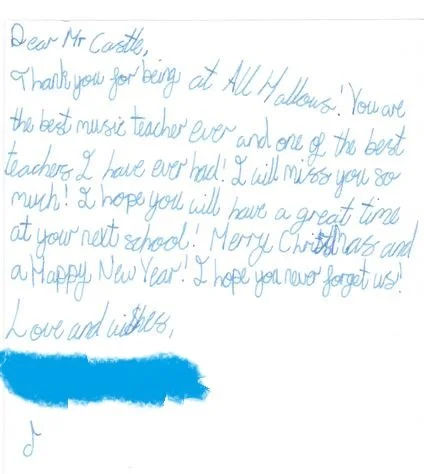 Dear Mr Castle,
Thank you for being at All Hallows! You are
the best music teacher ever and one of the best
teachers I have ever had! I will miss you so
much! I hope you will have a great time
at your next school! Merry Christmas and
a Happy New Year! I hope you never forget us!
Love and wishes,